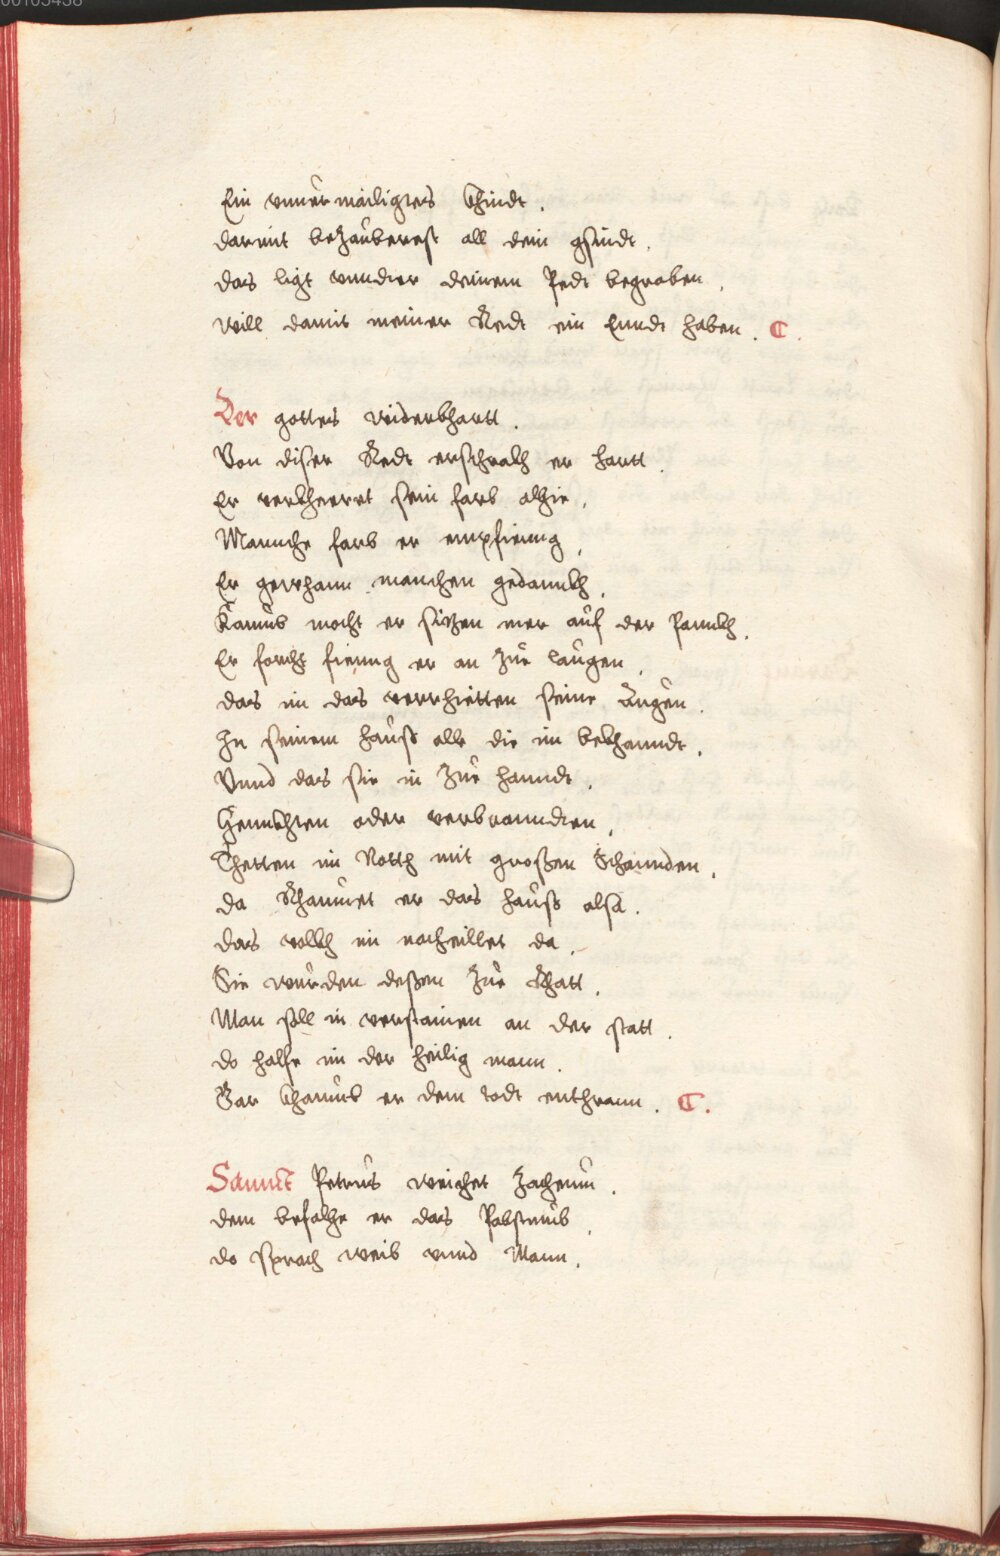 00103438
Ein vnuermailigtes Khindt.
darmit bezauberest all dein gsindt.
das ligt vnnder deinem Pedt begraben.
will damit meiner Redt ein Enndt haben. C.
Der gottes widerkhartt.
Von diser Redt erschrakh er hartt.
Er verkheerrt sein farb alhie.
Mannche farb er empfienng,
Er gewhann manchen gedannkh.
Kaumb mocht er sitzen mer auf der Pannkh.
Er forcht fienng er an zue laugen.
das im das verrhietten seine Augen.
In seinem hauß alle die im bekhanndt.
Vnnd das sie in zue hanndt.
Hennkhten oder verbranndten.
Thetten im Notth mit großen Schannden.
da Rhaumet er das hauß alsa.
das vollkh im nacheillet da.
Sie wurden deßen zue Rhatt.
Man soll in verstainen an der statt.
do halfe im der heilig mann.
Gar khaumb er dem todt enthrann. C.
Sannct Petrus weichet Zacheum.
dem befalhe er das Pabstumb.
do sprach weib vnnd Mann.